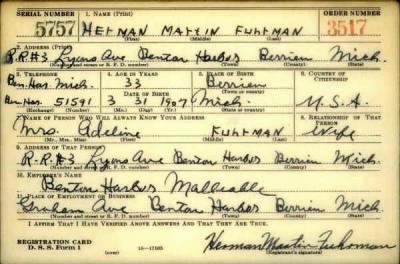 SERIAL NUMBER 1. NAME (Print) ORDER NUMBER
5757 HERMAN MARTIN FUHRMAN 3517
(First) (Middle) (Last)
2. ADDRESS (Print)
R.R.#3 Lyons Ave Benton Harbor Berrien Mich.
(Number and street or R. F. D. number) (Town) (County) (State)
3. TELEPHONE 4. AGE IN YEARS 5. PLACE OF BIRTH 6. COUNTRY OF CITIZENSHIP
Ben. Har. Mich. 33 Berrien
(Town or county)
DATE OF BIRTH
Ben Har. 51591 3 31 1907 Mich. U.S.A.
(Exchange) (Number) (Mo.) (Day) (Yr.) (State or country)
7. NAME OF PERSON WHO WILL ALWAYS KNOW YOUR ADDRESS 8. RELATIONSHIP OF THAT PERSON
Mrs. Adeline FUHRMAN Wife
(Mr., Mrs., Miss) (First) (Middle) (Last)
9. ADDRESS OF THAT PERSON
R.R.#3 Lyons Ave Benton Harbor Berrien Mich.
(Number and street or R. F. D. number) (Town) (County) (State)
10. EMPLOYER'S NAME
Benton Harbor Malleable
11. PLACE OF EMPLOYMENT OR BUSINESS
Graham Ave Benton Harbor Berrien Mich
(Number and street or R. F. D. number) (Town) (County) (State)
I AFFIRM THAT I HAVE VERIFIED ABOVE ANSWERS AND THAT THEY ARE TRUE.
REGISTRATION CARD
D. S. S. Form 1 (over) 16—17105 Herman Martin Fuhrman
(Registrant's signature)